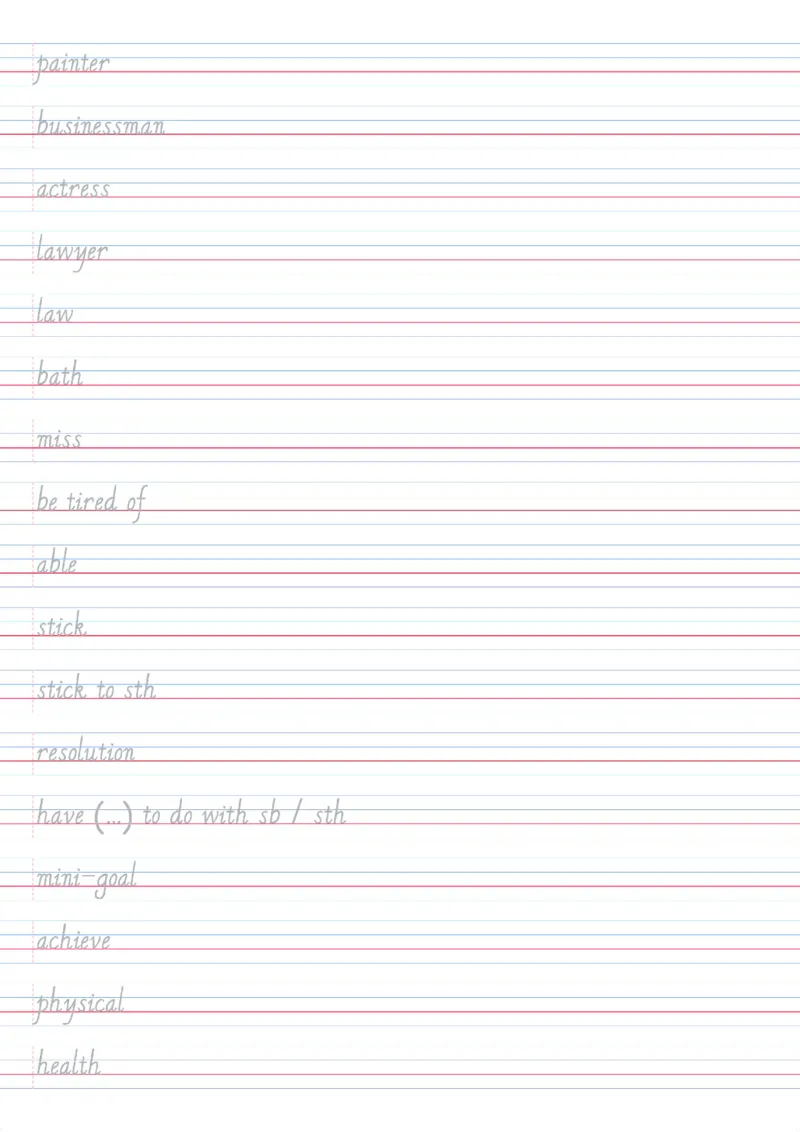 painter
businessman
actress
lawyer
law
bath
miss
be tired of
able
stick
stick to sth
resolution
have (...) to do with sb / sth
mini-goal
achieve
physical
health